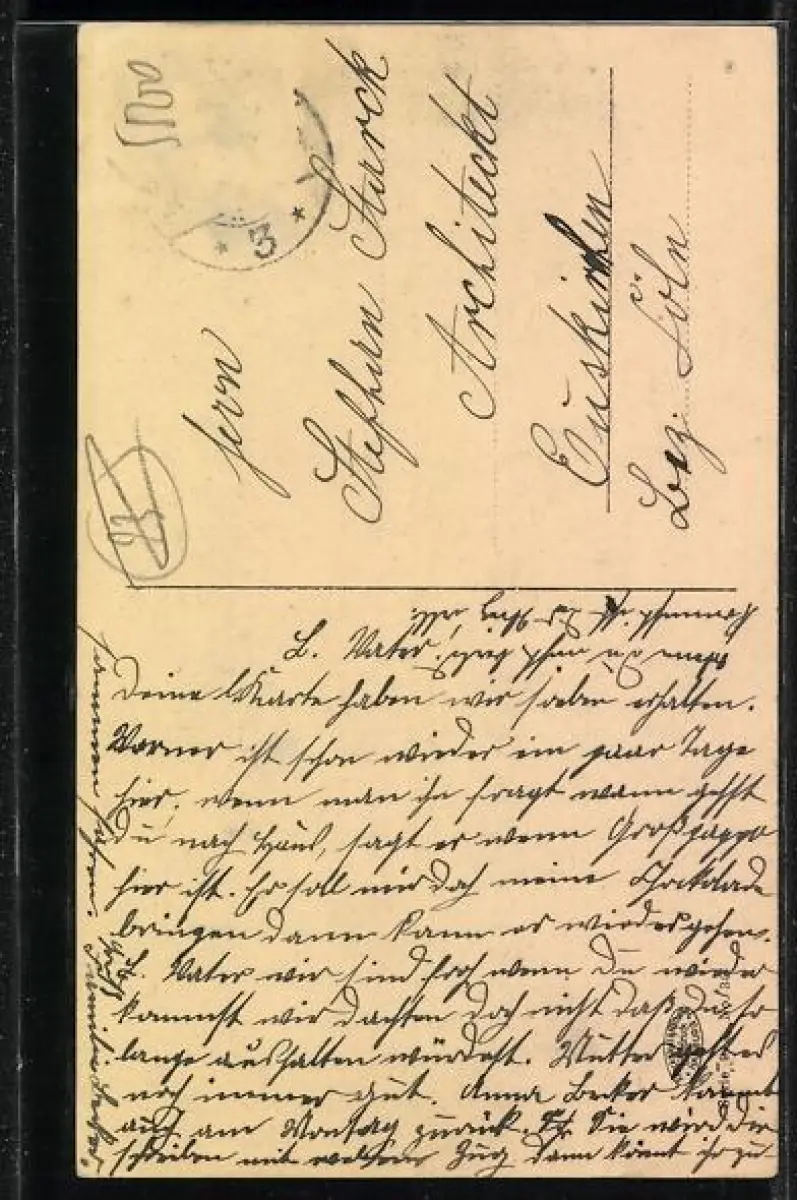 Herrn
Stephan Starck
Architeckt
Euskirchen
Bez. Cöln
3
L. Vater!
Deine Karte haben wir soeben erhalten.
Werner ist schon wieder ein paar Tage
hier, wenn man ihn fragt wann gehst
du nach Haus, sagt er wenn Großpappa
hier ist. Er soll mir doch meine Chokolade
bringen dann kann er wieder gehen.
L. Vater wir sind froh wenn Du wieder
kommst wir dachten doch nicht daß du so
lange aushalten würdest. Mutter geht es
noch immer gut. Anna Becker kommt
auch am Montag zurück. Sie wird dir
schreiben mit welchem Zug dann könnt ihr zu
sammen fahren.